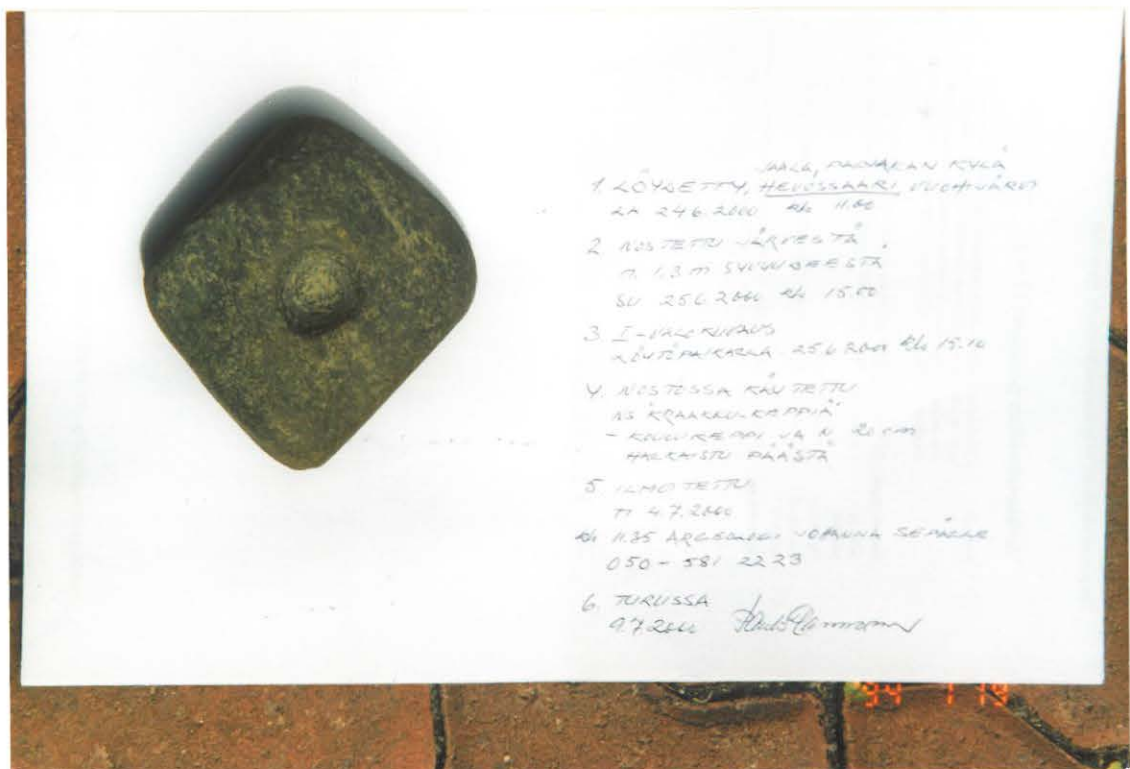 JAALA, PADAKAN KYLÄ
1. LÖYDETTY, HEVOSSAARI, VUOHIJÄRVI
LA 24.6.2000 klo 11.00
2. NOSTETTU JÄRVESTÄ
n. 1.3 m SYVYYDEESTÄ
SU 25.6.2000 klo 15.00
3. I-VALOKUVAUS
LÖYTÖPAIKALLA 25.6.2000 klo 15.10
4. NOSTOSSA KÄYTETTY
NS KRAAKKU-KEPPIÄ
- KOIVUKEPPI JA N 20 cm
HALKAISTU PÄÄSTÄ
5 ILMOITETTU
TI 4.7.2000
klo 11.35 ARGEOLOGI JOHANNA SEPÄLLE
050-581 2223
6. TURUSSA
9.7.2000
94 1 19